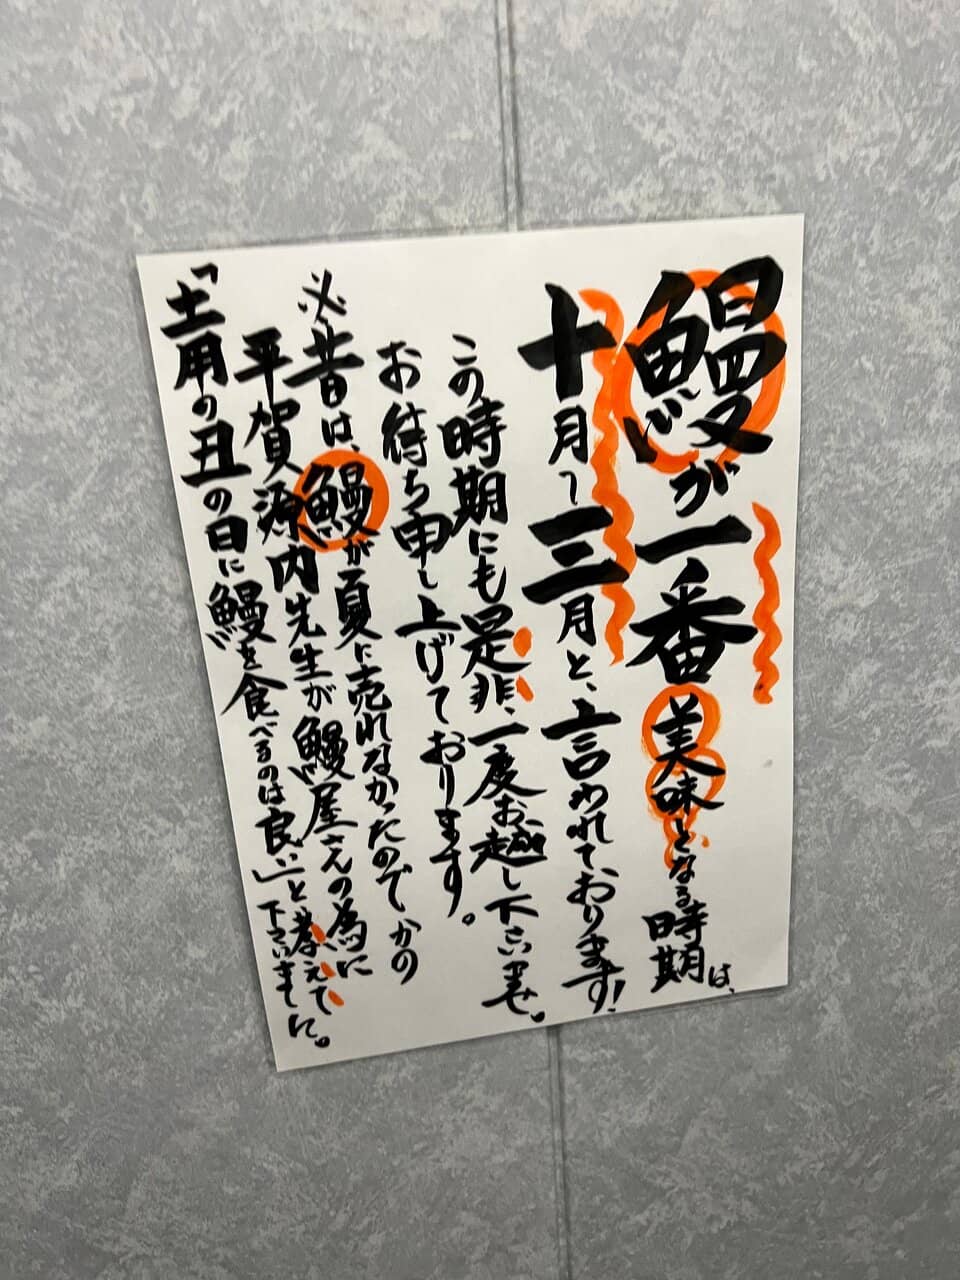 鰻が一番美味となる時期は、
十月〜三月と、言われております!
この時期にも是非、一度お越し下さいませ。
お待ち申し上げております。
※昔は、鰻が夏に売れなかったのでかの
平賀源内先生が鰻屋さんの為に
「土用の丑の日に鰻を食べるのは良い」と教えて下さいました。